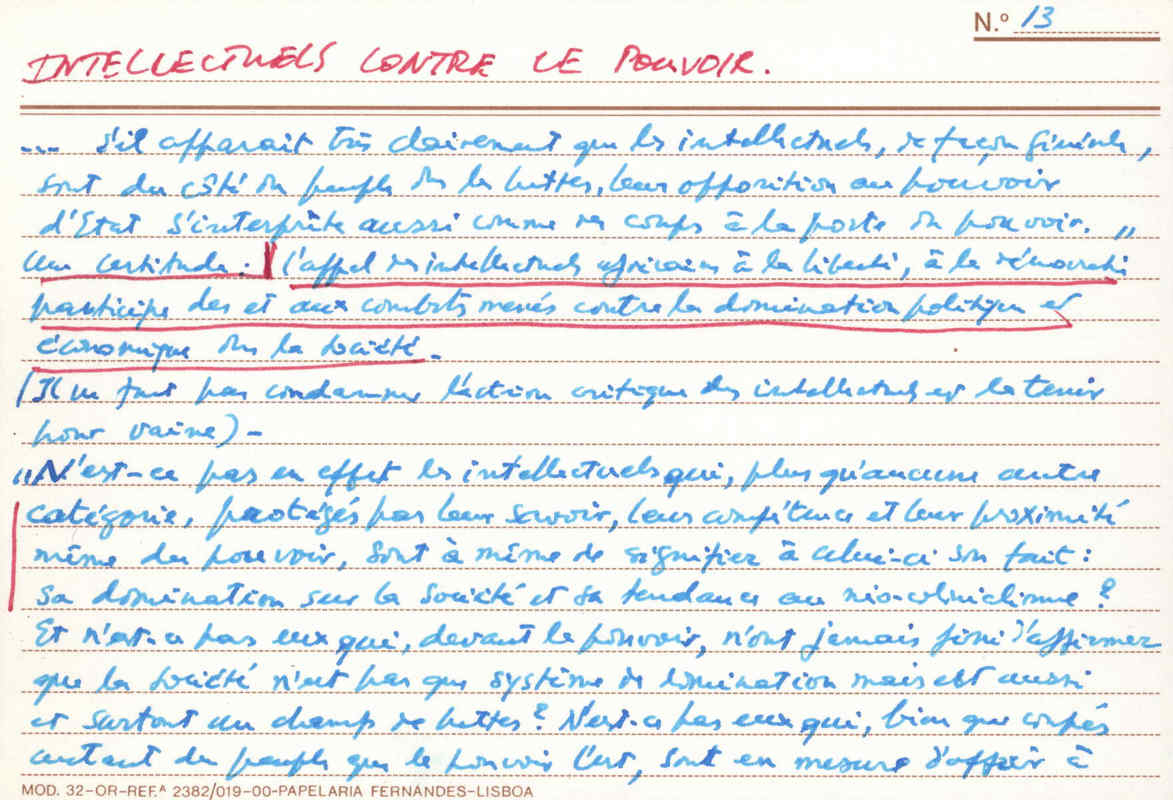 N.º 13
INTELLECTUELS CONTRE LE POUVOIR.
... s'il apparait très clairement que les intellectuels, de façon générale,
sont du côté du peuple dans les luttes, leur opposition au pouvoir
d'Etat s'interprète aussi comme des coups à la porte du pouvoir. "
Une certitude : l'appel des intellectuels africains à la liberté, à la démocratie
participe des et aux combats menés contre la domination politique et
économique dans la société -
(Il ne faut pas condamner l'action critique des intellectuels et la tenir
pour vaine) -
"N'est-ce pas en effet les intellectuels qui, plus qu'aucune autre
catégorie, protégés par leur savoir, leur compétence et leur proximité
même du pouvoir, sont à même de signifier à celui-ci son fait :
sa domination sur la société et sa tendance au néo-colonialisme ?
Et n'est-ce pas eux qui, devant le pouvoir, n'ont jamais fini d'affirmer
que la société n'est pas que système de domination mais est aussi
et surtout un champs de luttes ? N'est-ce pas eux qui, bien que coupés
autant du peuple que le pouvoir l'est, sont en mesure d'offrir à
MOD. 32-OR-REF.ᴬ 2382/019-00-PAPELARIA FERNANDES-LISBOA